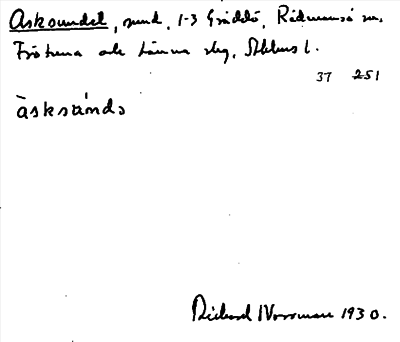 Asksundet, sund, 1-3 Gräddö, Rådmansö sn,
Frötuna och Länna skg, Sthlms l.
37 251
àsksúndə
Rickard Norrman 1930.